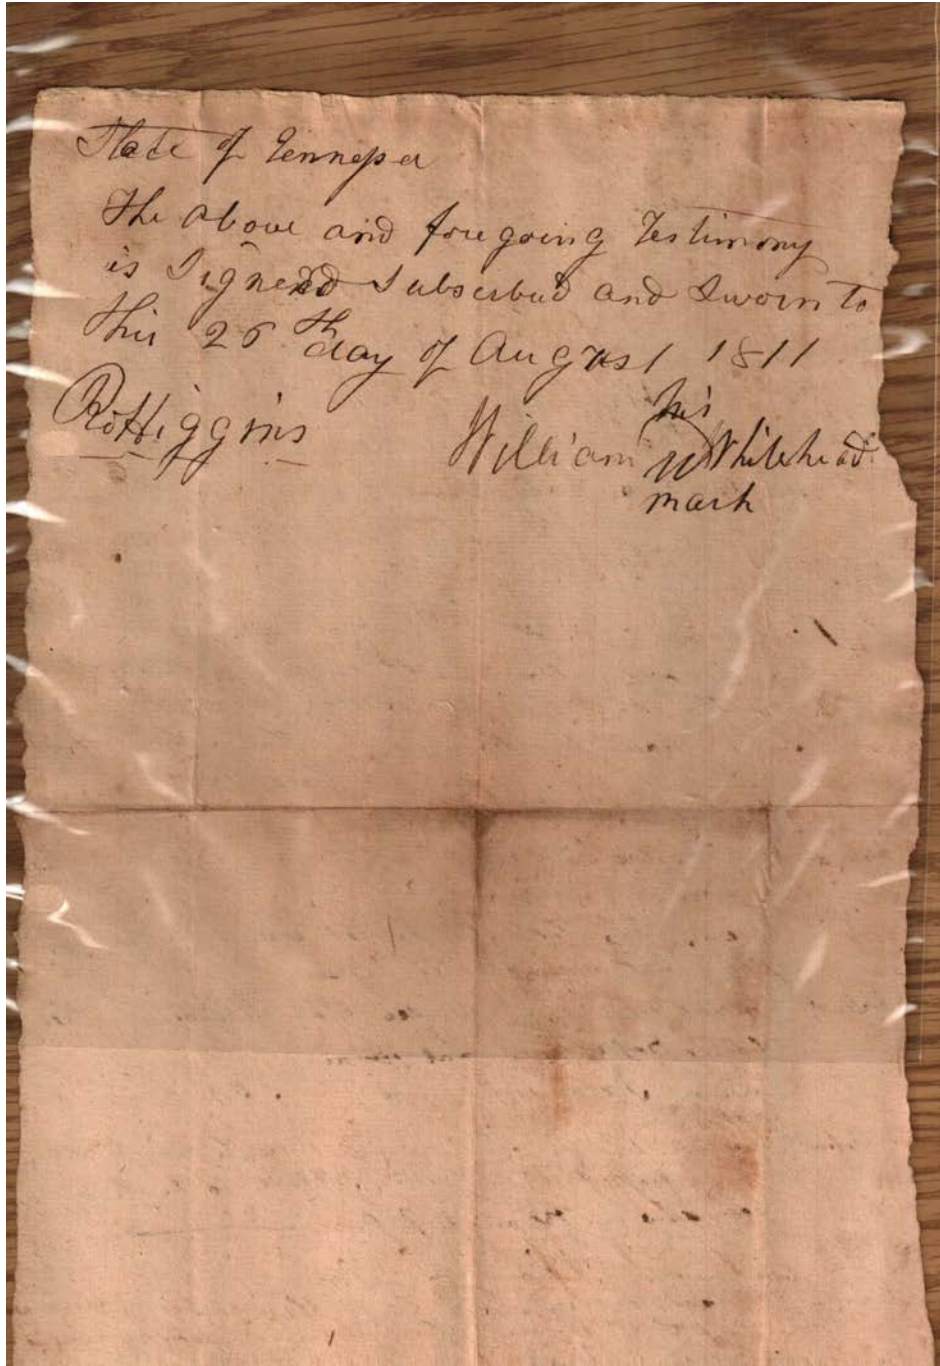 State of Tennessee
The above and foregoing Testimony
is Signed Subscribed and Sworn to
this 26th day of August 1811
his
Ro Higgins William W Whitehead
mark